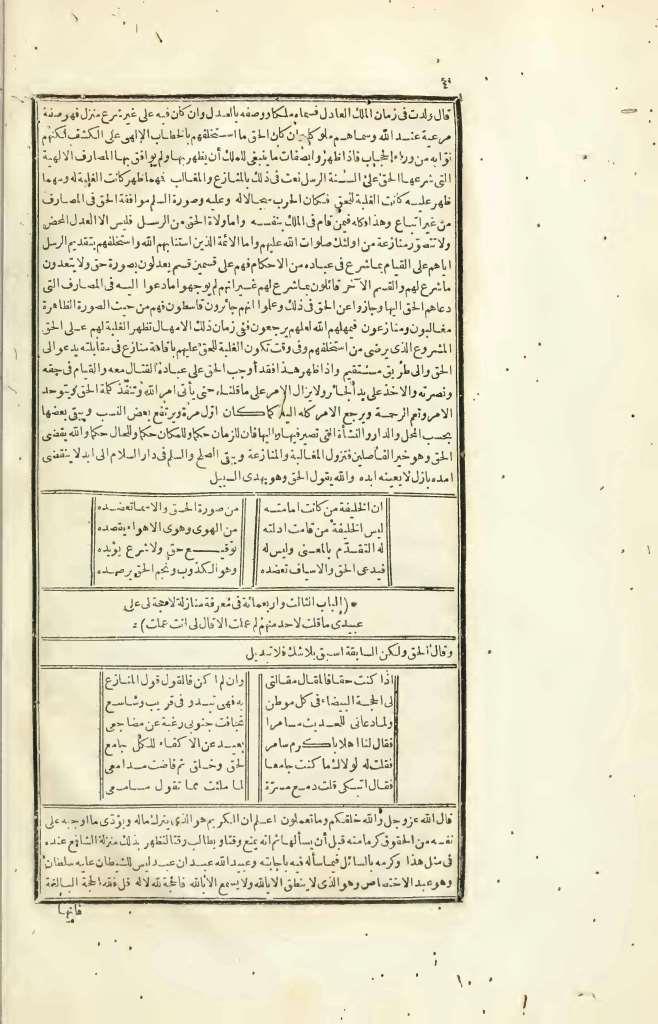 ٤٤
قال ولدت فى زمان الملك العادل فسماه ملكا ووصفه بالعدل وان كان فيه على غير شرع منزل فهو صفة
مرعية عند الله وسماهم ملوكا وان كان الحق ما استخلفهم بالخطاب الالهى على الكشف لكنهم
نوابه من وراء الحجاب فاذا ظهروا بصفات ما ينبغى للملك أن يظهر بها ولم يوافق بها المصارف الالهية
التى شرعها الحق على ألسنة الرسل نعت فى ذلك بالمنازع والمغالب فهما ظهر كانت الغلبة له ومهما
ظهر عليه كانت الغلبة للحق فكان الحرب سجالا له وعليه وصورة السلم موافقة الحق فى المصارف
من غير اتباع وهذا كله فيمن قام فى الملك بنفسه واما ولاة الحق من الرسل فليس الا العدل المحض
ولا تتصور منازعة من اولئك صلوات الله عليهم واما الأئمة الذين استنابهم الله واستخلفهم بتقديم الرسل
اياهم على القيام بما شرع فى عباده من الاحكام فهم على قسمين قسم يعدلون بصورة حق ولا يتعدون
ما شرع لهم والقسم الآخر قائلون بما شرع لهم غير انهم لم يوجهوا ما دعوا اليه فى المصارف التى
دعاهم الحق اليها وجازوا عن الحق فى ذلك وعلموا انهم جائرون قاسطون فهم من حيث الصورة الظاهرة
مغالبون ومنازعون فيمهلهم الله لعلهم يرجعون ففى زمان ذلك الامهال تظهر الغلبة لهم على الحق
المشروع الذى يرضى من استخلفهم وفى وقت تكون الغلبة للحق عليهم باقامة منازع فى مقابلته يدعو الى
الحق والى طريق مستقيم واذا ظهر هذا فقد أوجب الحق على عباده القتال معه والقيام فى حقه
ونصرته والاخذ على يد الجائر ولا يزال الامر على ما قلناه حتى يأتى امر الله وتنفذ كلمة الحق ويتوحد
الامر وتعم الرحمة ويرجع الامر كله اليه كما كان اول مرة ويرتفع بعض النسب ويبقى بعضها
بحسب المحل والدار والنشأة التى تصير فيها واليها فان للزمان حكما وللمكان حكما وللحال حكما والله يقضى
الحق وهو خير الفاصلين فتزول المغالبة والمنازعة ويبقى الصلح والسلم فى دار السلام الى ابد لا ينقضى
امده بازل لا يعينه ابده والله يقول الحق وهو يهدى السبيل
ان الخليفة من كانت امامته من صورة الحق والاسما تعضده
ليس الخليفة من قامت ادلته من الهوى وهوى الاهواء يقصده
له التقدّم بالمعنى وليس له توقيع حق ولا شرع يؤيده
فيدعى الحق والاسياف تعضده وهو الكذوب ونجم الحق يرصده
* (الباب الثالث واربعمائة فى معرفة منازلة لا حجة لى على
عبيدى ما قلت لاحد منهم لم عملت الا قال لى انت عملت) *
وقال الحق ولكن السابقة اسبق بلا شك فلا تبديل
اذا كنت حقا فالمقال مقالتى وان لم اكن فالقول قول المنازع
لى الحجة البيضاء فى كل موطن به فهى تبدو فى قريب وشاسع
ولما دعانى للحديث مسامرا تجافت جنوبى رغبة عن مضاجعى
فقال لنا اهلا باكرم سامر بعيد عن الاكفاء للكل جامع
فقلت له لولاك ما كنت جامعا لحق وخلق ثم فاضت مدامعى
فقال اتبكى قلت دمع مسرّة لما ملئت مما تقول مسامعى
قال الله عز وجل والله خلقكم وما تعملون اعلم ان الكريم هو الذى يترك ماله ويؤدّى ما اوجبه على
نفسه من الحقوق كرما منه قبل أن يسألها ثم انه يمنع وقتا ويطالب وقتا لتظهر بذلك منزلة الشافع عنده
فى مثل هذا وكرمه بالسائل فيما سأله فيه باجابته وعبيد الله عبدان عبد ليس للشيطان عليه سلطان
وهو عبد الاختصاص وهو الذى لا ينطق الا بالله ولا يسمع الا بالله فالحجة لله لا له قل فلله الحجة البالغة
فانها